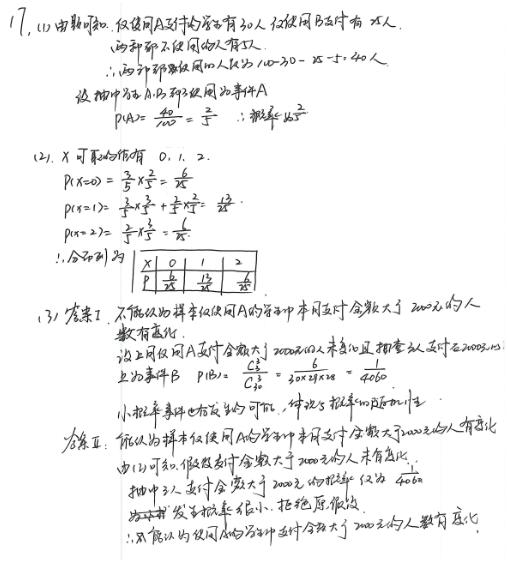 17. (1) 由题可知, 仅使用A支付的学生有30人 仅使用B支付有 25人.
两种都不使用的人有5人.
∴两种都使用的人仅为 100-30-25-5=40人
设抽中学生A.B都使用为事件A
P(A)= 40/100 = 2/5 ∴概率为 2/5
(2). X 可取的值有 0. 1. 2.
P(X=0) = 3/5 × 2/5 = 6/25
P(X=1) = 3/5 × 3/5 + 2/5 × 2/5 = 13/25.
P(X=2) = 2/5 × 3/5 = 6/25.
∴分布列为
X 0 1 2
P 6/25 13/25 6/25
(3) 答案I. 不能认为样本仅使用A的学生中本月支付金额大于 2000元的人
数有变化.
设上月仅用A支付金额大于2000元的人未变化且抽查3人支付在2000元以
上为事件B P(B)= C³₃/C³₃₀ = 6/30×29×28 = 1/4060
小概率事件也有发生的可能, 体现了概率的随机性
答案II. 能认为样本仅使用A的学生中本月支付金额大于2000元的人有变化
由(2)可知.假设支付金额大于2000元的人未有变化.
抽中3人支付金额大于2000元的概率仅为 1/4060
发生概率很小. 拒绝原假设.
能认为仅用A的学生中支付金额大于2000元的人数有变化.